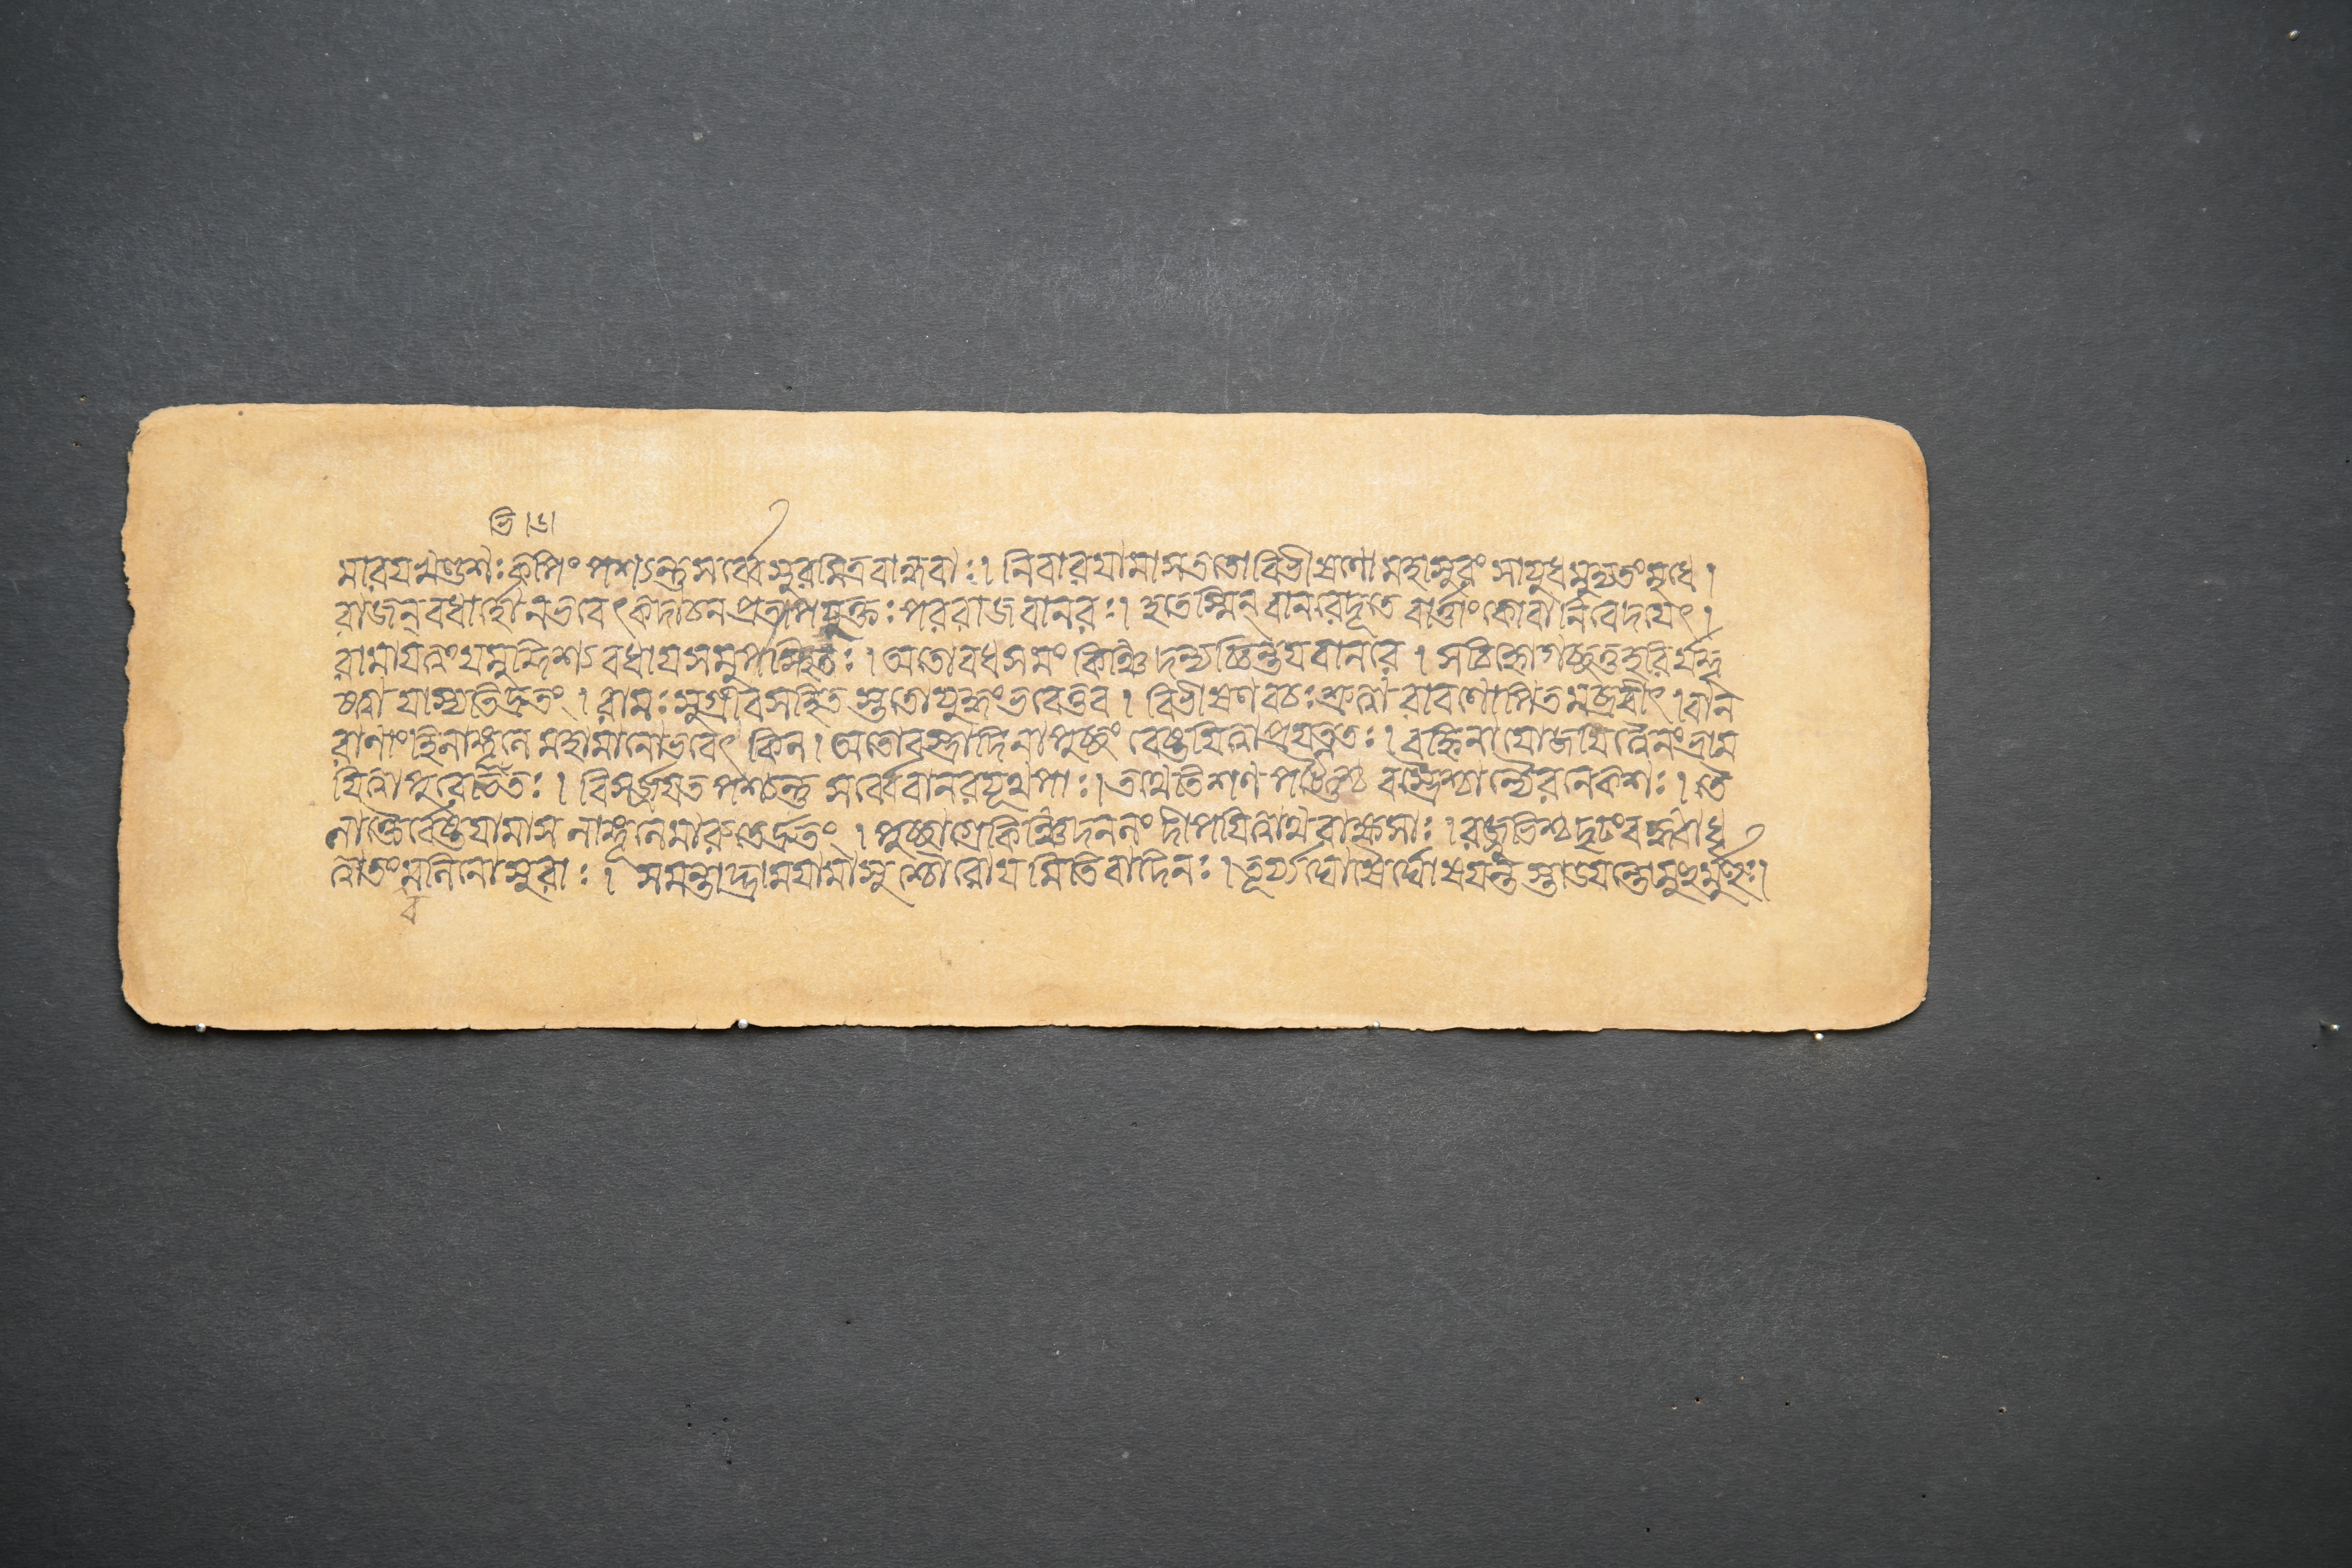 ভি।৬।
মারয খণ্ডশঃ কপিং পশ্যন্তু সর্ব্বে সুরমিত্রবান্ধবাঃ। নিবারয়ামাস ততো বিভীষণো মহাসুরং সাযুধমুদ্যতং মৃধে।
রাজন্ বধার্হো ন ভবেৎ কদাচন প্রতাপযুক্তঃ পররাজবানরঃ। হতেস্মিন্ বানরে দূতে বার্ত্তাং কো বা নিবেদয়েৎ।
রামায় ত্বং যমুদ্দিশ্য বধায় সমুপস্থিতঃ। অতো বধসমং কিঞ্চিদন্যচ্চিন্তয় বানরে। সচিহ্নো গচ্ছতু হরির্যন্দৃ
ষ্ট্বা যাস্যতি দ্রুতং। রামঃ সুগ্রীবসহিতস্ততো যুদ্ধং ভবেত্তব। বিভীষণবচঃ শ্রুত্বা রাবণোপিতমব্রবীৎ। বান
রানাং হি লাঙ্গূলে মহামানো ভবেৎ কিল। অতো বস্ত্রাদিনা পুচ্ছং বেষ্টয়িত্বা প্রযত্নতঃ। বহ্নিনা যোজয়িত্বৈনং ভ্রাম
য়িত্বা পুরের্চিতঃ। বিসর্জ্জয়ত পশ্যন্তু সর্ব্বে বানরযূথপাঃ। তথেতি শণপট্টৈশ্চ বস্ত্রৈশ্চান্যৈরনেকশঃ। তৈ
লাক্তৈর্বেষ্টয়ামাস লাঙ্গূলে মারুতের্দ্রুতং। পুচ্ছাগ্রে কিঞ্চিদনলং দীপয়িত্বাথ রাক্ষসাঃ। রজ্জুভিশ্চ দৃঢং বদ্ধ্বা ধৃ
ত্বা তং বলিনো সুরাঃ। সমন্তাদ্ভ্রাময়ামাসুশ্চোরোয়মিতি বাদিনঃ। তূর্য্যঘোষৈর্ঘোষয়ন্তস্তাডয়ন্তো মুহুর্মুহুঃ।
ব